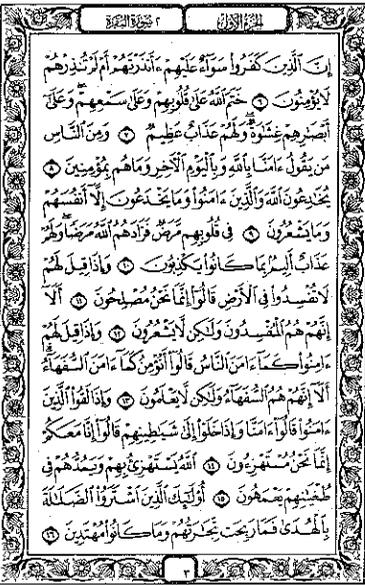 الجزء الأول
٢ سورة البقرة
إِنَّ ٱلَّذِينَ كَفَرُوا۟ سَوَآءٌ عَلَيْهِمْ ءَأَنذَرْتَهُمْ أَمْ لَمْ تُنذِرْهُمْ
لَا يُؤْمِنُونَ ٦ خَتَمَ ٱللَّهُ عَلَىٰ قُلُوبِهِمْ وَعَلَىٰ سَمْعِهِمْ ۖ وَعَلَىٰٓ
أَبْصَـٰرِهِمْ غِشَـٰوَةٌ ۖ وَلَهُمْ عَذَابٌ عَظِيمٌ ٧ وَمِنَ ٱلنَّاسِ
مَن يَقُولُ ءَامَنَّا بِٱللَّهِ وَبِٱلْيَوْمِ ٱلْـَٔاخِرِ وَمَا هُم بِمُؤْمِنِينَ ٨
يُخَـٰدِعُونَ ٱللَّهَ وَٱلَّذِينَ ءَامَنُوا۟ وَمَا يَخْدَعُونَ إِلَّآ أَنفُسَهُمْ
وَمَا يَشْعُرُونَ ٩ فِى قُلُوبِهِم مَّرَضٌ فَزَادَهُمُ ٱللَّهُ مَرَضًا ۖ وَلَهُمْ
عَذَابٌ أَلِيمٌۢ بِمَا كَانُوا۟ يَكْذِبُونَ ١٠ وَإِذَا قِيلَ لَهُمْ
لَا تُفْسِدُوا۟ فِى ٱلْأَرْضِ قَالُوٓا۟ إِنَّمَا نَحْنُ مُصْلِحُونَ ١١ أَلَآ
إِنَّهُمْ هُمُ ٱلْمُفْسِدُونَ وَلَـٰكِن لَّا يَشْعُرُونَ ١٢ وَإِذَا قِيلَ لَهُمْ
ءَامِنُوا۟ كَمَآ ءَامَنَ ٱلنَّاسُ قَالُوٓا۟ أَنُؤْمِنُ كَمَآ ءَامَنَ ٱلسُّفَهَآءُ ۗ
أَلَآ إِنَّهُمْ هُمُ ٱلسُّفَهَآءُ وَلَـٰكِن لَّا يَعْلَمُونَ ١٣ وَإِذَا لَقُوا۟ ٱلَّذِينَ
ءَامَنُوا۟ قَالُوٓا۟ ءَامَنَّا وَإِذَا خَلَوْا۟ إِلَىٰ شَيَـٰطِينِهِمْ قَالُوٓا۟ إِنَّا مَعَكُمْ
إِنَّمَا نَحْنُ مُسْتَهْزِءُونَ ١٤ ٱللَّهُ يَسْتَهْزِئُ بِهِمْ وَيَمُدُّهُمْ فِى
طُغْيَـٰنِهِمْ يَعْمَهُونَ ١٥ أُو۟لَـٰٓئِكَ ٱلَّذِينَ ٱشْتَرَوُا۟ ٱلضَّلَـٰلَةَ
بِٱلْهُدَىٰ فَمَا رَبِحَت تِّجَـٰرَتُهُمْ وَمَا كَانُوا۟ مُهْتَدِينَ ١٦
٣